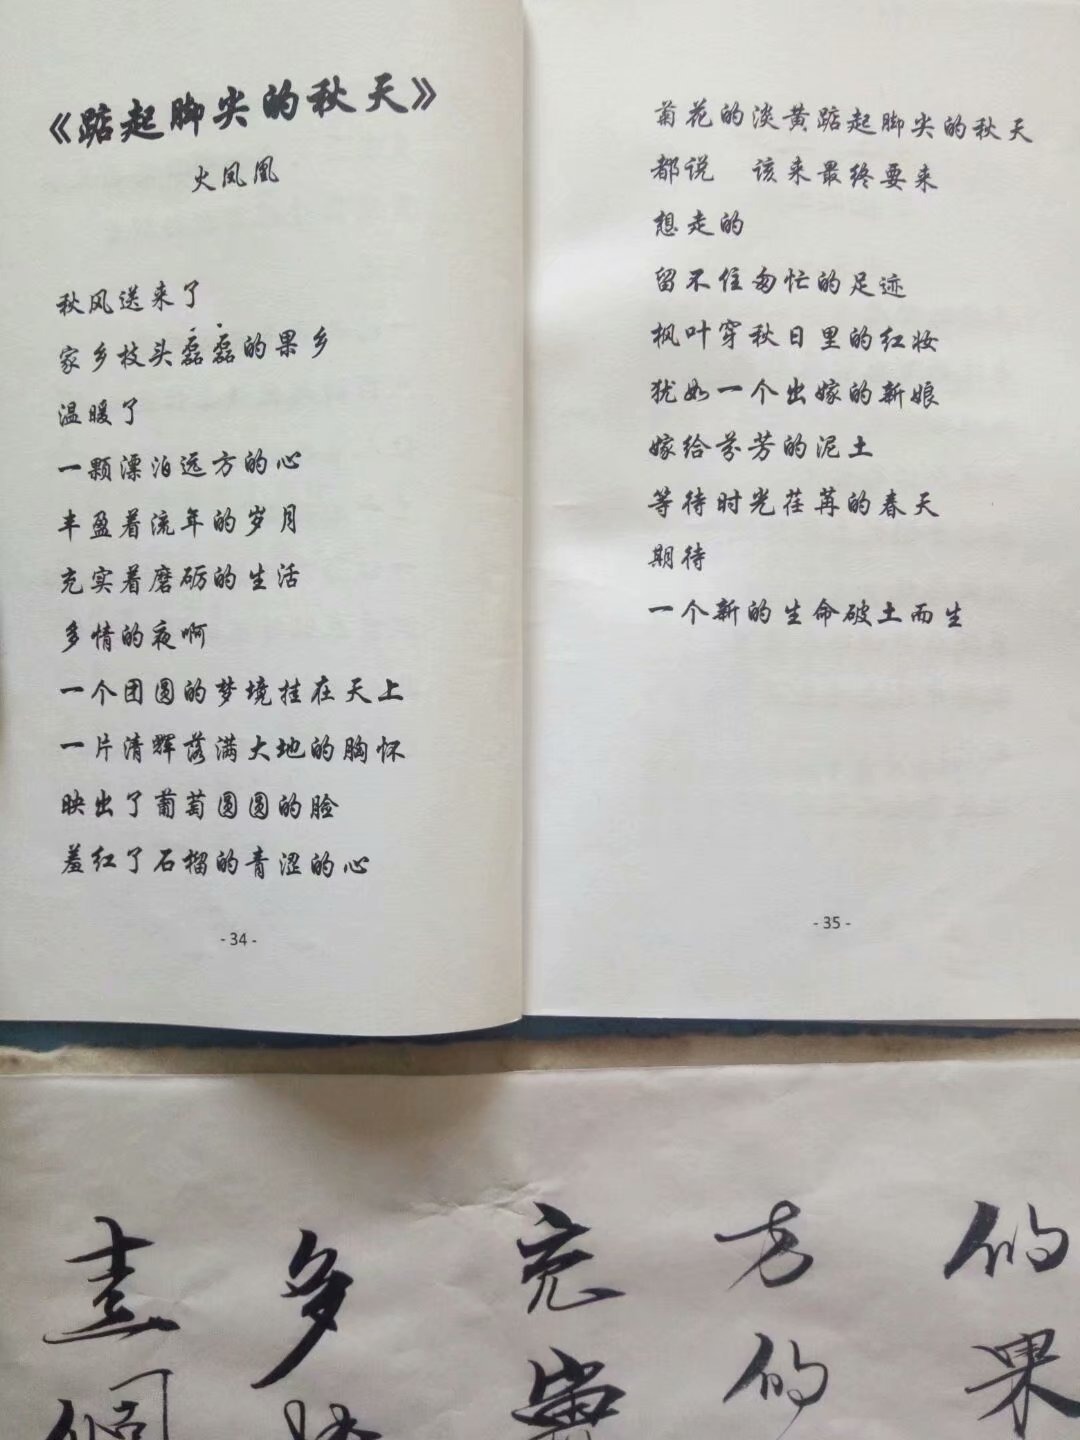 《踮起脚尖的秋天》
火凤凰
秋风送来了
家乡枝头磊磊的果乡
温暖了
一颗漂泊远方的心
丰盈着流年的岁月
充实着磨砺的生活
多情的夜啊
一个团圆的梦境挂在天上
一片清辉落满大地的胸怀
映出了葡萄圆圆的脸
羞红了石榴的青涩的心
- 34 -
菊花的淡黄踮起脚尖的秋天
都说 该来最终要来
想走的
留不住匆忙的足迹
枫叶穿秋日里的红妆
犹如一个出嫁的新娘
嫁给芬芳的泥土
等待时光荏苒的春天
期待
一个新的生命破土而生
- 35 -
的果
方的
充实
多